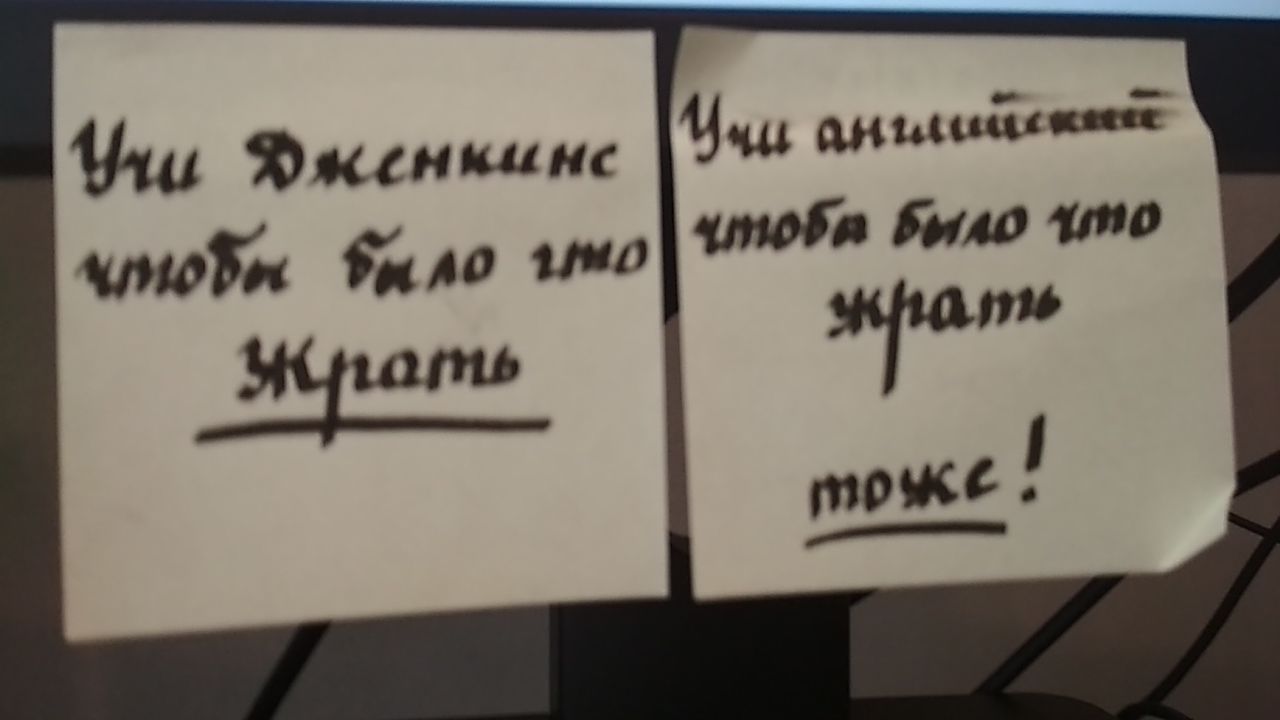 Учи Дженкинс
чтобы было что
Жрать
Учи английский
чтобы было что
жрать
тоже!